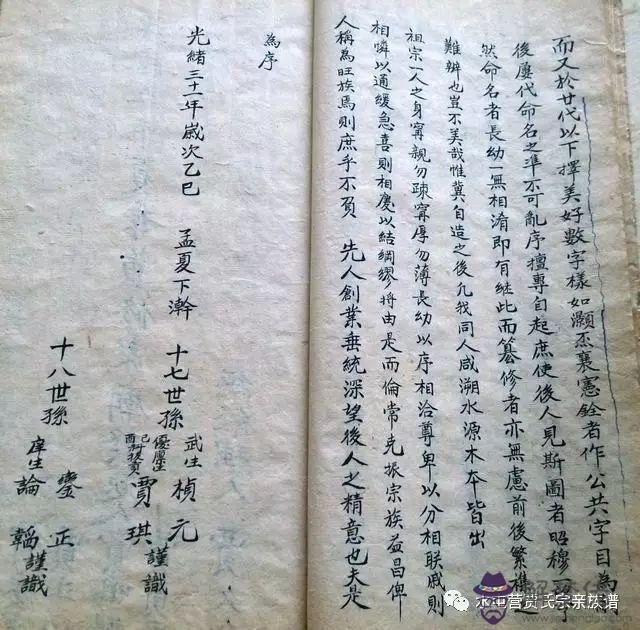 而又於廿代以下擇美好數字樣如灝丕襄憲銓者作公共字目為
後屢代命名之準不可亂序擅專自起庶使後人見斯圖者昭穆
然命名者長幼一無相淆即有繼此而篡修者亦無慮前後繁
難辨也豈不美哉惟冀自造之後凡我同人咸溯水源木本皆出
祖宗一人之身寧親勿疎寧厚勿薄長幼以序相洽尊卑以分相聯戚則
相憐以通緩急喜則相慶以結綢繆將由是而倫常克振宗族益昌俾
人稱為旺族焉則庶乎不負 先人創業垂統深望後人之精意也夫是
為序
光緒三十一年歲次乙巳 孟夏下澣 十七世孫
武生 楨 元
優廩生
己酉科拔貢
賈 琪 謹識
十八世孫
鑾 正
庠生 論 韜 謹識
永 营贾氏宗亲族谱